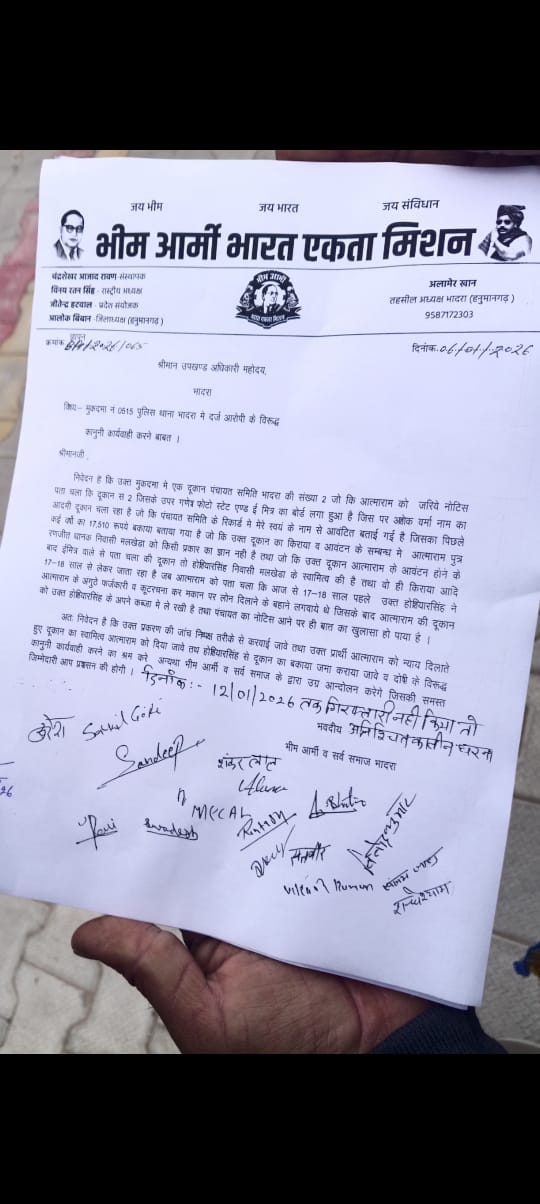 जय भीम
जय भारत
जय संविधान
भीम आर्मी भारत एकता मिशन
चंद्रशेखर आजाद रावण संस्थापक
विनय रतन सिंह - राष्ट्रीय अध्यक्ष
जीतेन्द्र हटवाल - प्रदेश संयोजक
आलोक बिबान -जिलाध्यक्ष (हनुमानगढ़)
भीम आर्मी
भारत एकता मिशन
अलामेर खान
तहसील अध्यक्ष भादरा (हनुमानगढ़ )
9587172303
क्रमांक. /2026/065
दिनांक.06/01/2026
श्रीमान उपखण्ड अधिकारी महोदय,
भादरा
विषय:- मुकदमा नं 0515 पुलिस थाना भादरा मे दर्ज आरोपी के विरूद्ध
कानुनी कार्यवाही करने बाबत ।
श्रीमानजी,
निवेदन है कि उक्त मुकदमा मे एक दूकान पंचायत समिति भादरा की संख्या 2 जो कि आत्माराम को जरिये नोटिस
पता चला कि दूकान स 2 जिसके उपर गणेश फोटो स्टेट एण्ड ई मित्र का बोर्ड लगा हुआ है जिस पर अशोक वर्मा नाम का
आदमी दूकान चला रहा है जो कि पंचायत समिति के रिकार्ड मे मेरे स्वयं के नाम से आवंटित बताई गई है जिसका पिछले
कई वर्षो का 17,510 रूपये बकाया बताया गया है जो कि उक्त दूकान का किराया व आवंटन के सम्बन्ध मे आत्माराम पुत्र
रणजीत धानक निवासी मलखेडा को किसी प्रकार का ज्ञान नही है तथा जो कि उक्त दूकान आत्माराम के आवंटन होने के
बाद ईमित्र वाले से पता चला की दूकान तो होशियारसिंह निवासी मलखेडा के स्वामित्व की है तथा वो ही किराया आदि
17-18 साल से लेकर जाता रहा है जब आत्माराम को पता चला कि आज से 17-18 साल पहले उक्त होशियारसिंह ने
आत्माराम के अगुठे फर्जकारी व कूटरचना कर मकान पर लोन दिलाने के बहाने लगवाये थे जिसके बाद आत्माराम की दूकान
को उक्त होशियारसिंह के अपने कब्जा मे ले रखी है तथा पंचायत का नोटिस आने पर ही बात का खुलासा हो पाया है ।
अतः निवेदन है कि उक्त प्रकरण की जांच निष्पक्ष तरीके से करवाई जावे तथा उक्त प्रार्थी आत्माराम को न्याय दिलाते
हुए दूकान का स्वामित्व आत्माराम को दिया जावे तथ होशियारसिंह से दूकान का बकाया जमा कराया जावे व दोषी के विरूद्ध
कानुनी कार्यवाही करने का श्रम करे अन्यथा भीम आर्मी व सर्व समाज के द्वारा उग्र आन्दोलन करेगे जिसकी समस्त
जिम्मेदारी आप प्रशसन की होगी ।
दिनांक:- 12/01/2026 तक गिरफ्तारी नही किया तो
अनिश्चित कालीन धरना
भवदीय
भीम आर्मी व सर्व समाज भादरा
Sandeep
शंकर लाल
Ravi
सतवीर
राधेश्याम
26